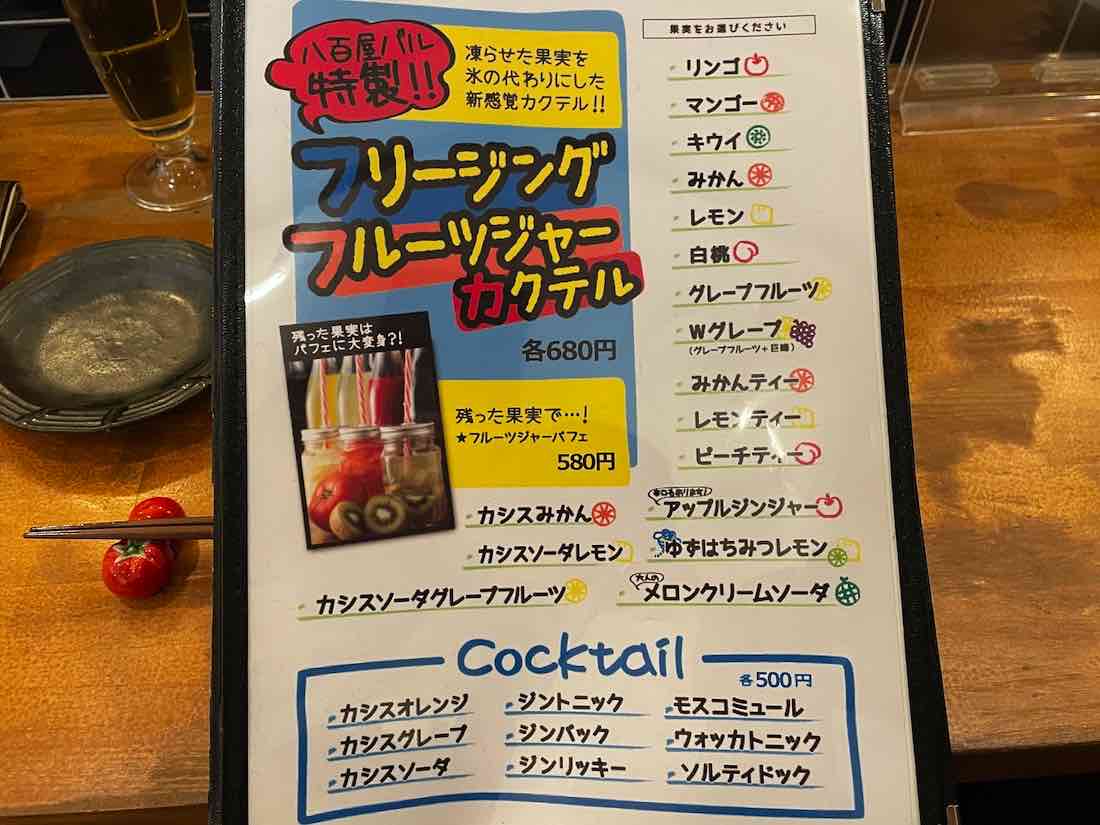 八百屋バル
特製!!
凍らせた果実を
氷の代わりにした
新感覚カクテル!!
フリージング
フルーツジャー
カクテル
各680円
残った果実は
パフェに大変身?!
残った果実で…!
★フルーツジャーパフェ
580円
果実をお選びください
リンゴ
マンゴー
キウイ
みかん
レモン
白桃
グレープフルーツ
Wグレープ
(グレープフルーツ+巨峰)
みかんティー
レモンティー
ピーチティー
カシスみかん
辛口あります!
アップルジンジャー
カシスソーダレモン
ゆずはちみつレモン
カシスソーダグレープフルーツ
大人の
メロンクリームソーダ
Cocktail
各500円
カシスオレンジ
ジントニック
モスコミュール
カシスグレープ
ジンバック
ウォッカトニック
カシスソーダ
ジンリッキー
ソルティドック